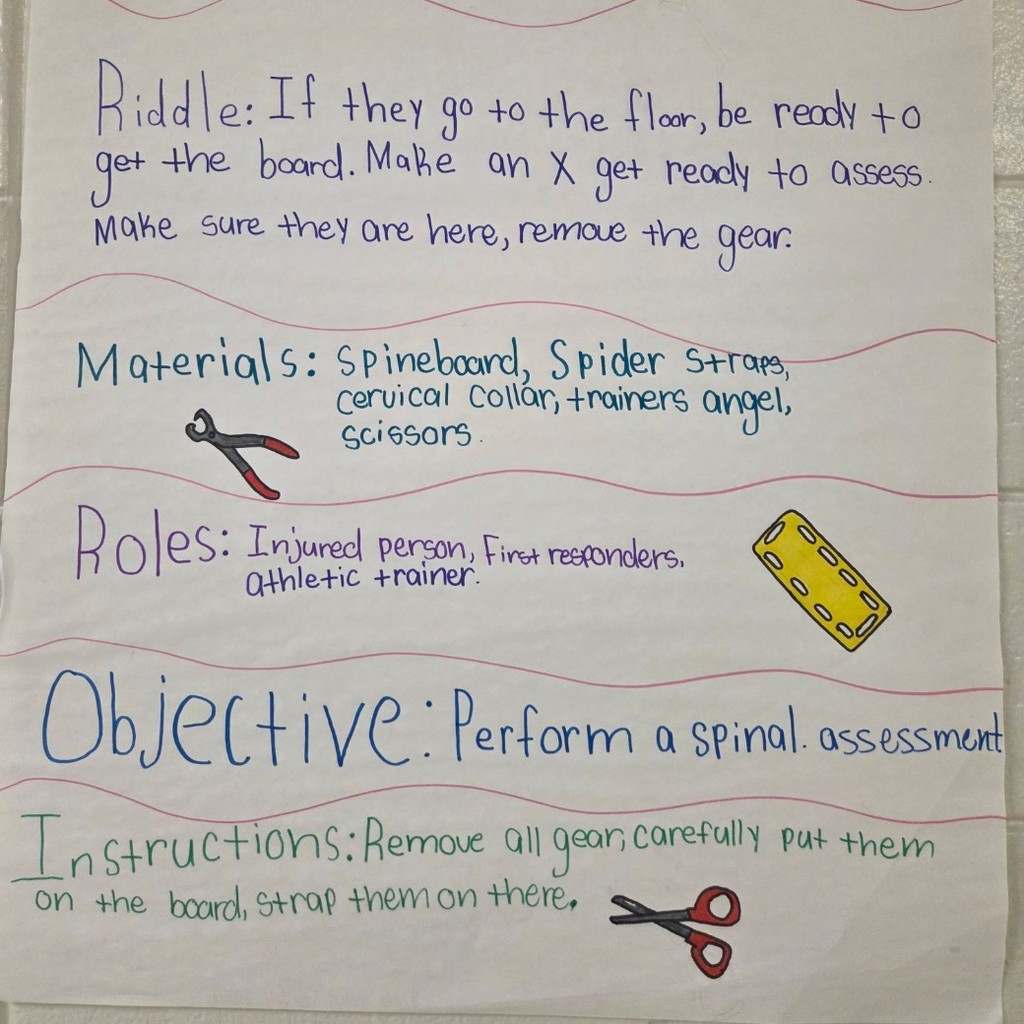 Riddle: If they go to the floor, be ready to
get the board. Make an X get ready to assess.
Make sure they are here, remove the gear.
Materials: Spineboard, Spider straps,
cervical collar, trainers angel,
scissors.
Roles: Injured person, First responders,
athletic trainer.
Objective: Perform a spinal. assessment
Instructions: Remove all gear, carefully put them
on the board, strap them on there.